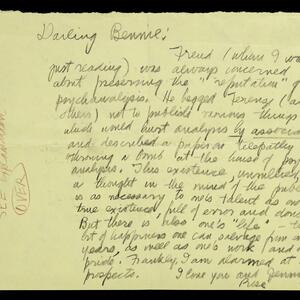 Darling Bennie:
Freud (whom I was
just reading) was always concerned
about preserving the "reputation" of
psychoanalysis. He begged Ferenczi (and
others) not to publish various things
which would hurt analysis by association
and described a paper on telepathy
throwing a bomb at the house of psycho
analysis. This existence,
a thought in the mind of the public
is as necessary to one's talent as one's
true existence, full of error and done
But there is also one's life – the
bit of happiness one can salvage from
years, as well as one's work and
pride. Frankly, I am alarmed at
prospects. I love you and Jennie
SEE
OVER